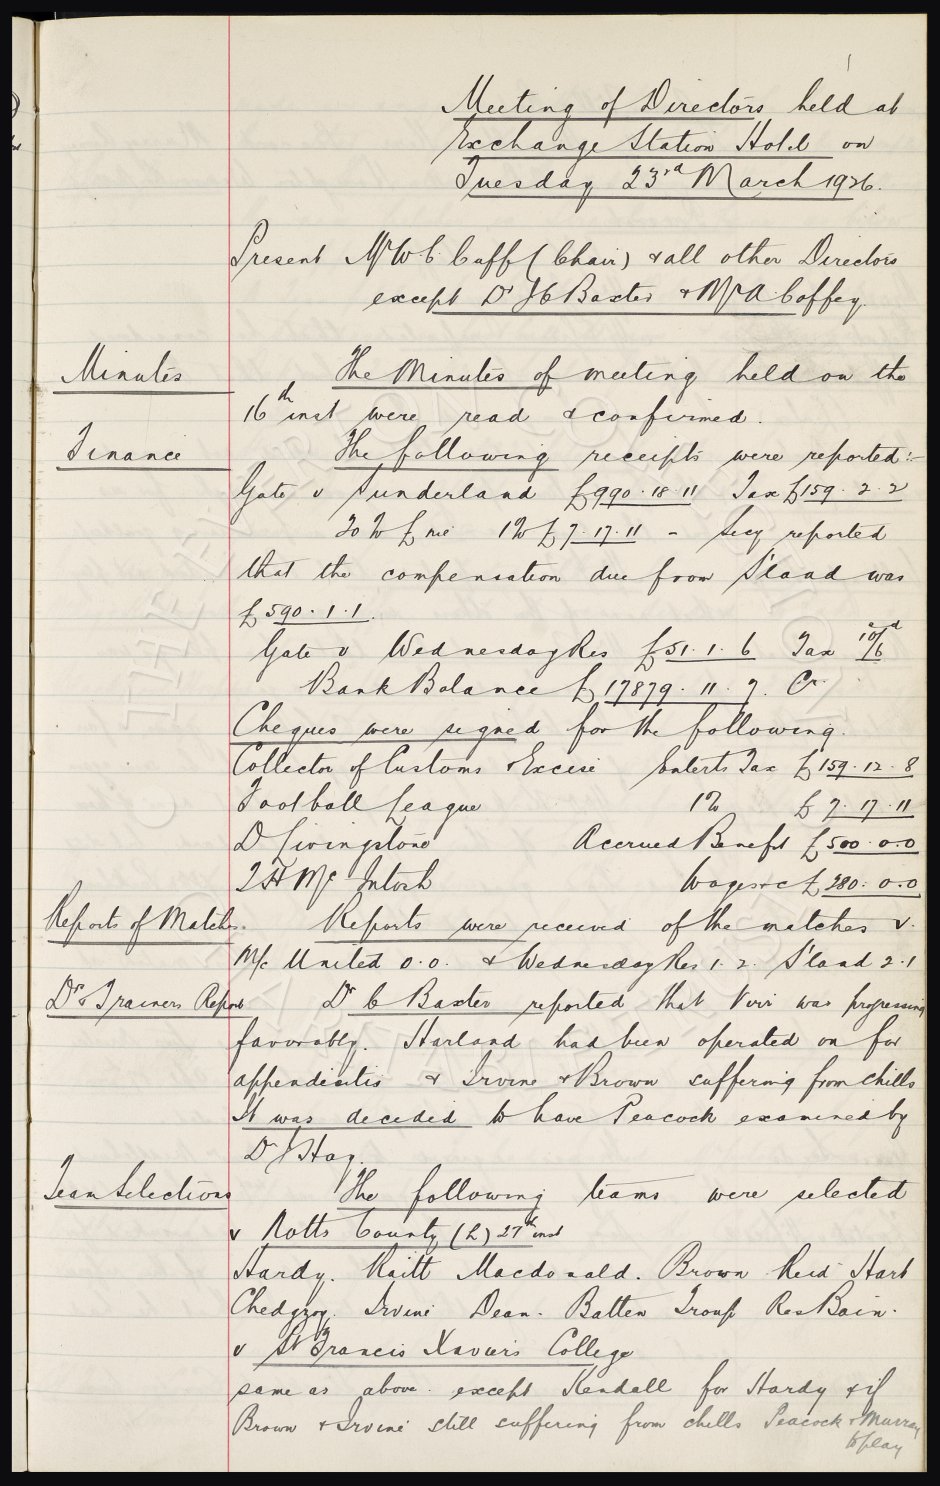 Meeting of Directors held at
Exchange Station Hotel on
Tuesday 23rd March 1926.
Present Mr W C Cuff (Chair) & all other Directors
except Dr J C Baxter & Mr A Coffey.
Minutes
The Minutes of meeting held on the
16th inst were read & confirmed.
Finance
The following receipts were reported:-
Gate v Sunderland £990.18.11 Tax £159.2.2
20% £ nil 1% £7.17.11 - Secy reported
that the compensation due from S'land was
£590.1.1.
Gate v Wednesday Res £51.1.6 Tax 10/6d
Bank Balance £17879.11.7. Cr
Cheques were signed for the following.
Collector of Customs & Excise Enterts Tax £159.12.8
Football League 1% £7.17.11
D Livingstone Accrued Benefit £500.0.0
T H McIntosh Wages &c £280.0.0
Reports of Matches.
Reports were received of the matches v.
M/c United 0.0. & Wednesday Res 1.2. S'land 2.1
Drs & Trainers Report
Dr C Baxter reported that Virr was progressing
favorably. Harland had been operated on for
appendicitis & Irvine & Brown suffering from chills
It was decided to have Peacock examined by
Dr Hay.
Team Selections
The following teams were selected
v Notts County (L) 27th inst
Hardy. Raitt Macdonald. Brown Reid Hart
Chedgzoy. Irvine Dean. Batten Troup Res Bain.
v St Francis Xaviers College
same as above except Kendall for Hardy & if
Brown & Irvine still suffering from chills Peacock & Murray
to play